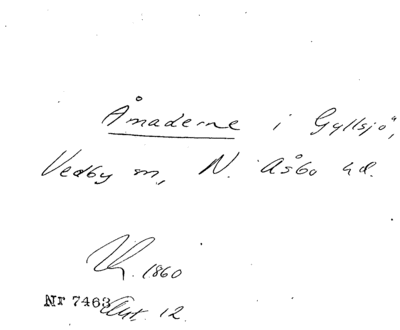 Åmaderne i Gyllsjö,
Vedby m, N. Åsbo hd.
1860
Nr 7463 Akt. 12.